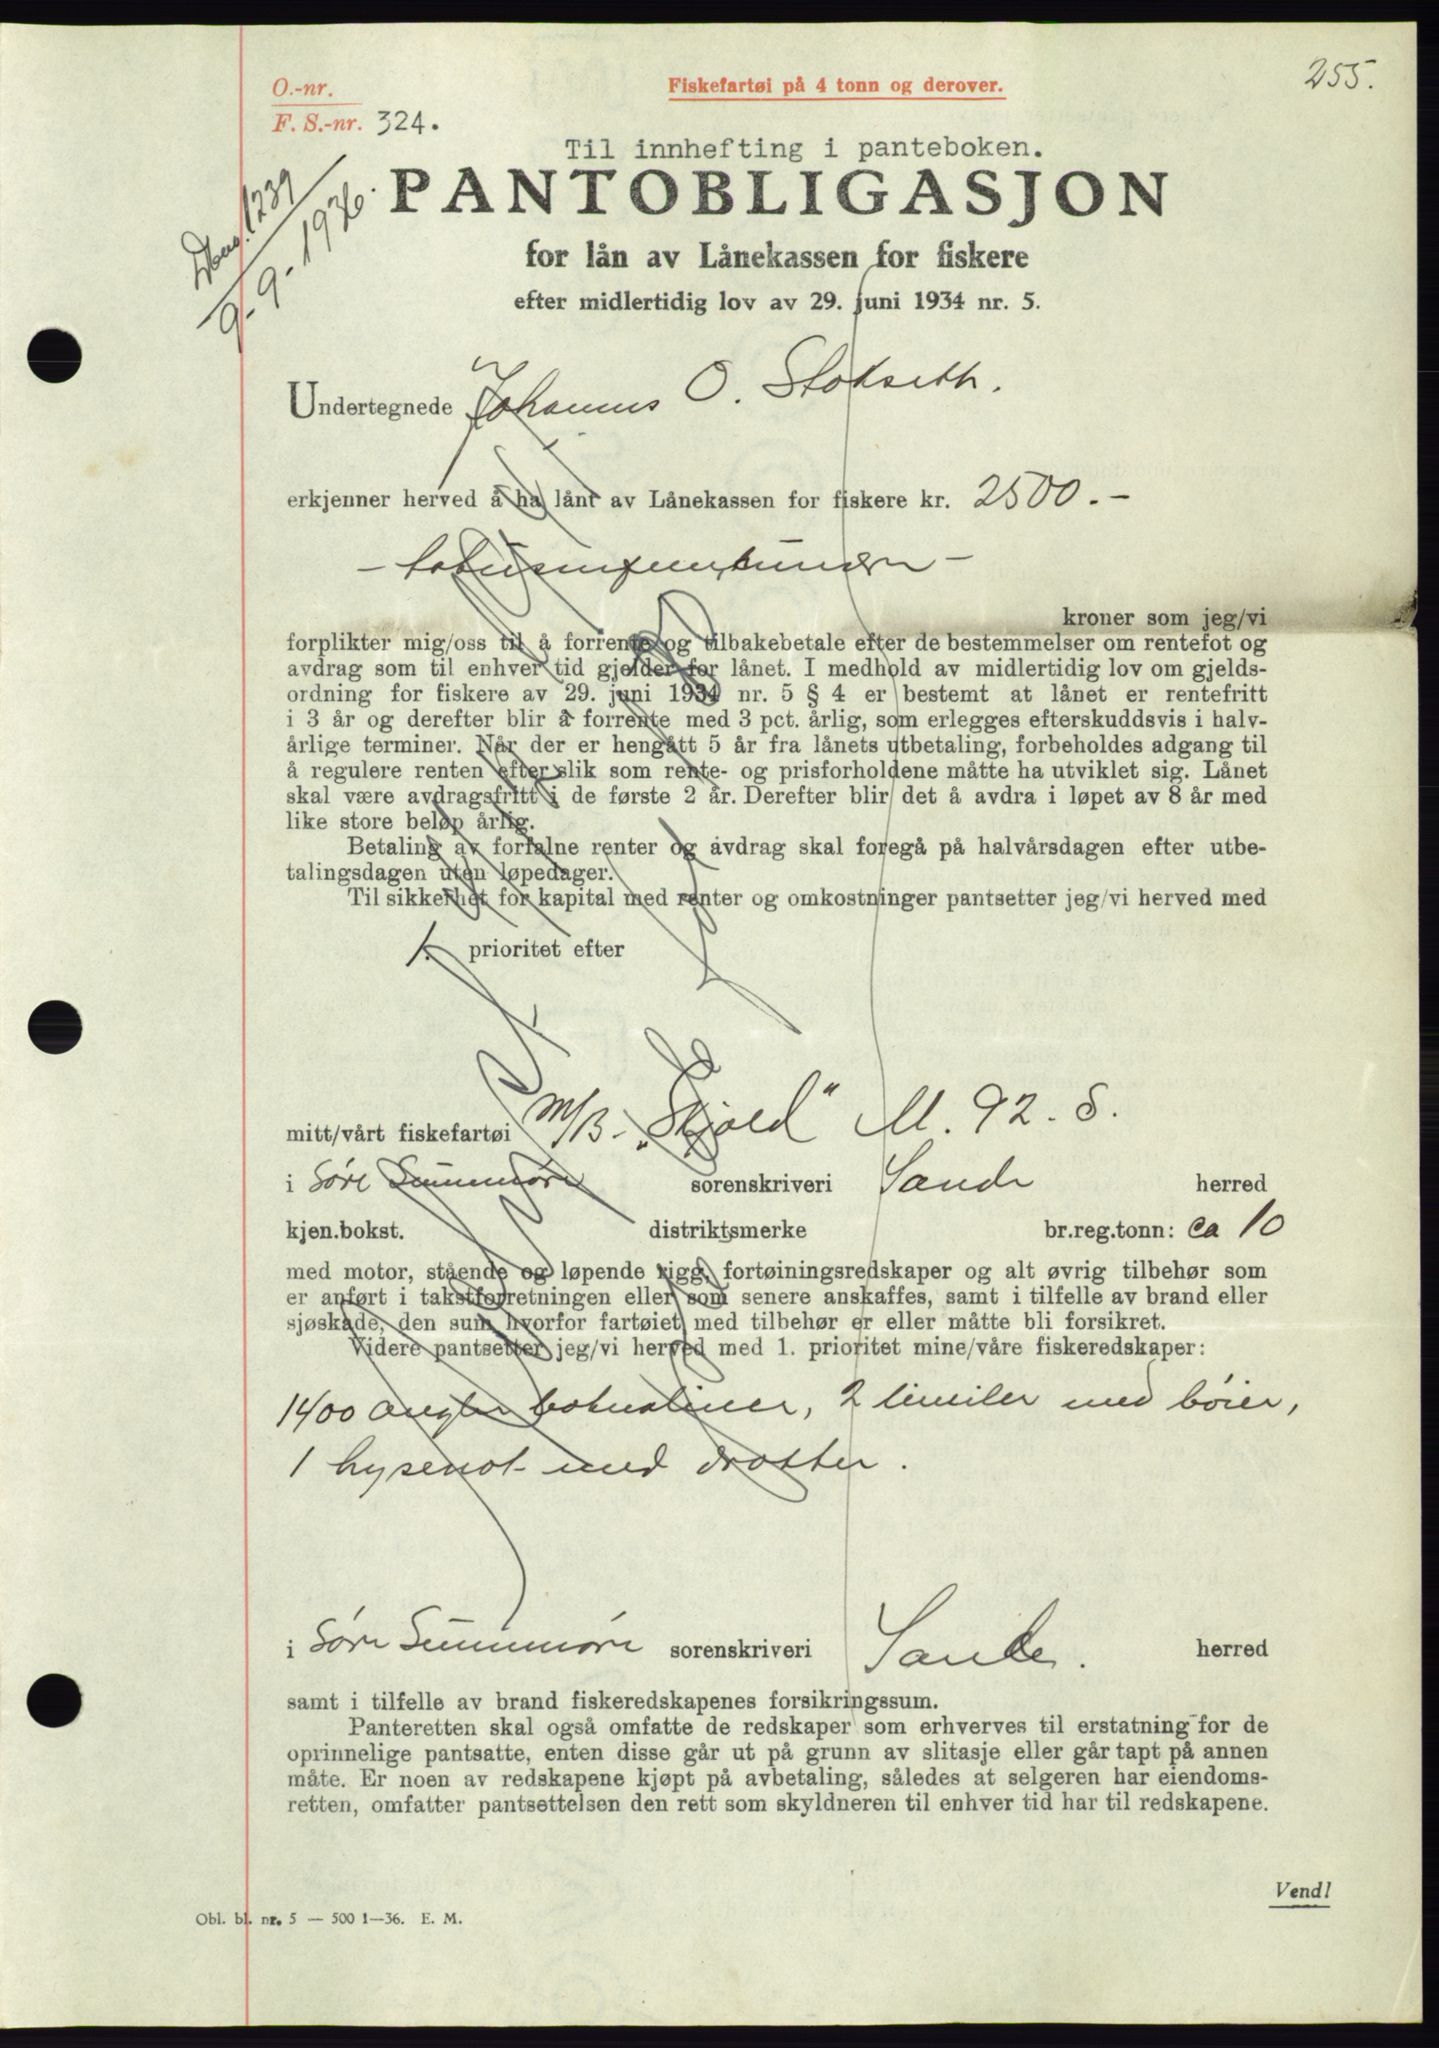 255.
O.-nr.
Fiskefartøi på 4 tonn og derover.
F. S.-nr. 324.
Til innhefting i panteboken.
1239
9/9-1936.
PANTOBLIGASJON
for lån av Lånekassen for fiskere
efter midlertidig lov av 29. juni 1934 nr. 5.
Undertegnede Johannes O. Stokseth.
erkjenner herved å ha lånt av Lånekassen for fiskere kr. 2500.-
- totusenfemhundre -
kroner som jeg/vi
forplikter mig/oss til å forrente og tilbakebetale efter de bestemmelser om rentefot og
avdrag som til enhver tid gjelder for lånet. I medhold av midlertidig lov om gjelds-
ordning for fiskere av 29. juni 1934 nr. 5 § 4 er bestemt at lånet er rentefritt
i 3 år og derefter blir å forrente med 3 pct. årlig, som erlegges efterskuddsvis i halv-
årlige terminer. Når der er hengått 5 år fra lånets utbetaling, forbeholdes adgang til
å regulere renten efter slik som rente- og prisforholdene måtte ha utviklet sig. Lånet
skal være avdragsfritt i de første 2 år. Derefter blir det å avdra i løpet av 8 år med
like store beløp årlig.
Betaling av forfalne renter og avdrag skal foregå på halvårsdagen efter utbe-
talingsdagen uten løpedager.
Til sikkerhet for kapital med renter og omkostninger pantsetter jeg/vi herved med
1. prioritet efter
mitt/vårt fiskefartøi M/B. „Skjold" M. 92. S.
i Søre Sunnmøre sorenskriveri Sande herred
kjen.bokst. distriktsmerke br.reg.tonn: ca 10
med motor, stående og løpende rigg, fortøiningsredskaper og alt øvrig tilbehør som
er anført i takstforretningen eller som senere anskaffes, samt i tilfelle av brand eller
sjøskade, den sum hvorfor fartøiet med tilbehør er eller måtte bli forsikret.
Videre pantsetter jeg/vi herved med 1. prioritet mine/våre fiskeredskaper:
1400 angler botnaliner, 2 liner med bøier,
1 hysenot med drotter.
i Søre Sunnmøre sorenskriveri Sande. herred
samt i tilfelle av brand fiskeredskapenes forsikringssum.
Panteretten skal også omfatte de redskaper som erhverves til erstatning for de
oprinnelige pantsatte, enten disse går ut på grunn av slitasje eller går tapt på annen
måte. Er noen av redskapene kjøpt på avbetaling, således at selgeren har eiendoms-
retten, omfatter pantsettelsen den rett som skyldneren til enhver tid har til redskapene.
Vend!
Obl. bl. nr. 5 — 500 1—36. E. M.